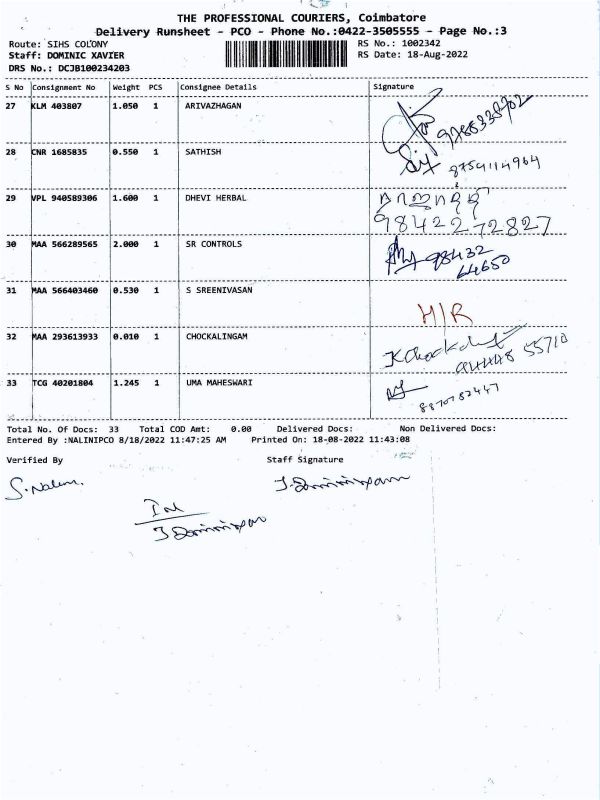 THE PROFESSIONAL COURIERS, Coimbatore
Delivery Runsheet - PCO - Phone No.:0422-3505555 - Page No.:3
Route: SIHS COLONY RS No.: 1002342
Staff: DOMINIC XAVIER RS Date: 18-Aug-2022
DRS No.: DCJB100234203
S No Consignment No Weight PCS Consignee Details Signature
27 KLM 403807 1.050 1 ARIVAZHAGAN
28 CNR 1685835 0.550 1 SATHISH
8754114964
29 VPL 940589306 1.600 1 DHEVI HERBAL
9842272827
30 MAA 566289565 2.000 1 SR CONTROLS
98432
64650
31 MAA 566403460 0.530 1 S SREENIVASAN
H/R
32 MAA 293613933 0.010 1 CHOCKALINGAM
94448 55710
33 TCG 40201804 1.245 1 UMA MAHESWARI
8870782447
Total No. Of Docs: 33 Total COD Amt: 0.00 Delivered Docs: Non Delivered Docs:
Entered By :NALINIPCO 8/18/2022 11:47:25 AM Printed On: 18-08-2022 11:43:08
Verified By Staff Signature
S. Nalini